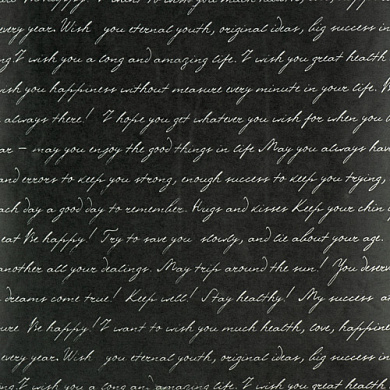 every year. Wish you eternal youth, original ideas, big success in
ng. I wish you a long and amazing life. I wish you great health
ish you happiness without measure every minute in your life. W
always there! I hope you get whatever you wish for when you b
ar – may you enjoy the good things in life May you always hav
and errors to keep you strong, enough success to keep you trying,
ach day a good day to remember. Hugs and kisses Keep your chin u
eat Be happy! Try to save you slowly, and lie about your age
another all your dealings. May trip around the sun! You deserv
dreams come true! Keep well! Stay healthy! My success in
ure Be happy! I want to wish you much health, love, happine
every year. Wish you eternal youth, original ideas, big success in
ng. I wish you a long and amazing life. I wish you great health